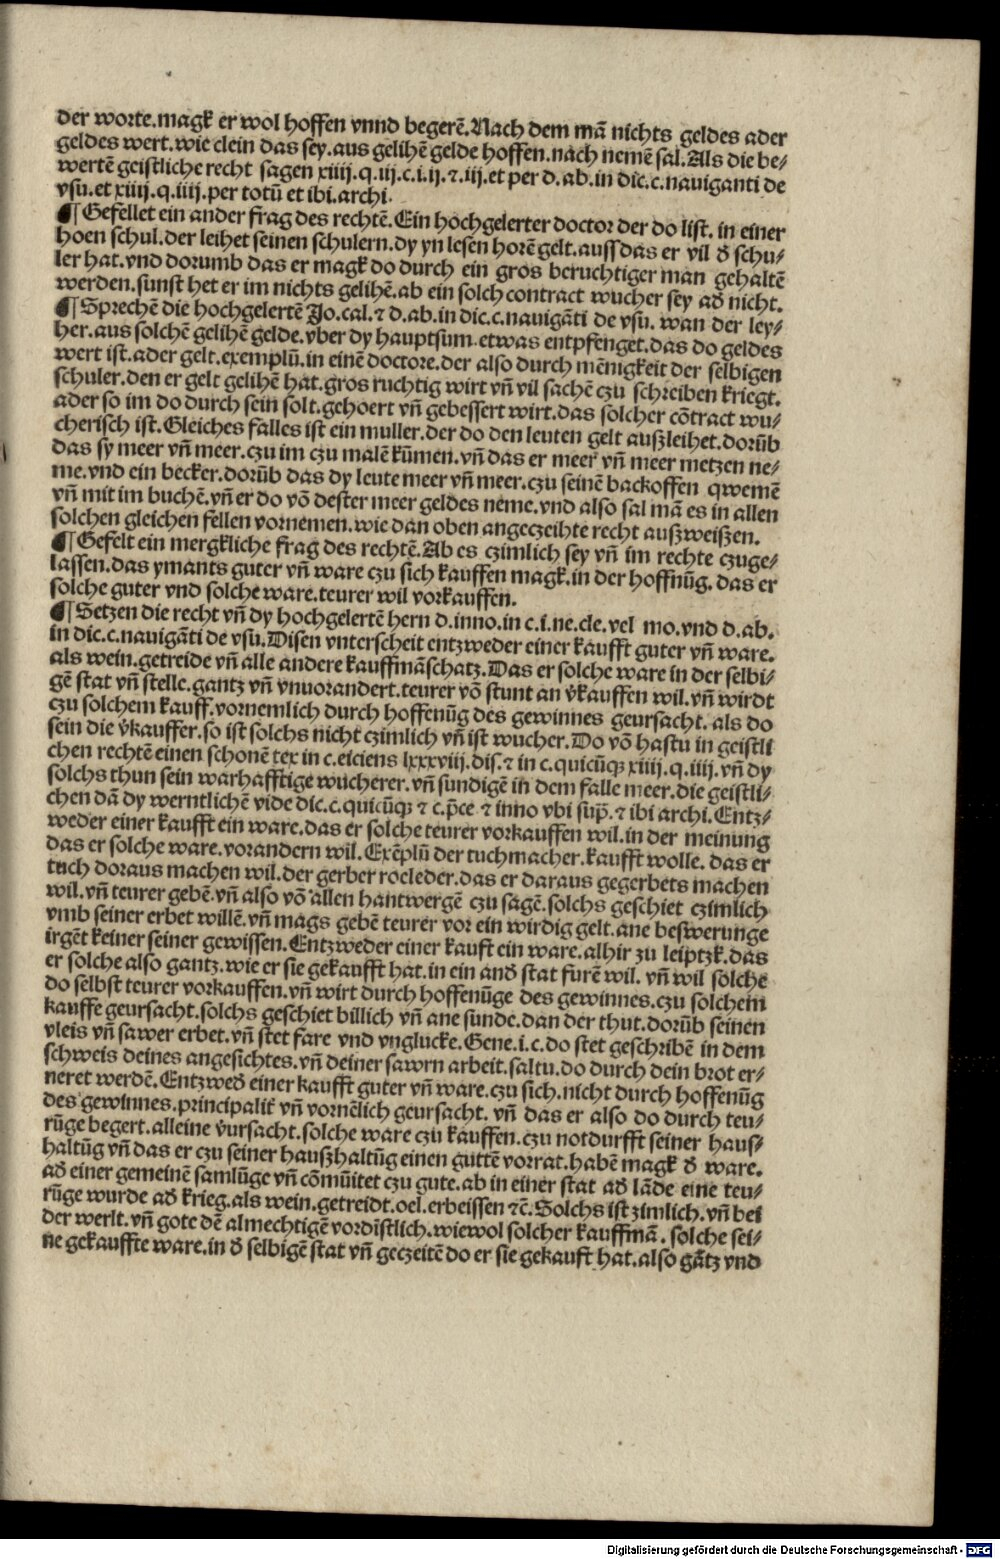 der worte.magk er wol hoffen vnnd begerẽ.Nach dem mã nichts geldes ader
geldes wert.wie clein das sey.aus gelihẽ gelde hoffen.nach nemẽ sal.Als die be⸗
wertẽ geistliche recht sagen xiiij.q.iij.c.i.ij.⁊.iij.et per d.ab.in dic.c.nauiganti de
vsu.et xiiij.q.iiij.per totũ et ibi.archi.
¶ Gefellet ein ander frag des rechtẽ.Ein hochgelerter doctor der do list. in einer
hoen schul.der leihet seinen schulern.dy yn lesen horẽ gelt.auss das er vil ð schu⸗
ler hat.vnd dorumb das er magk do durch ein gros beruchtiger man gehaltẽ
werden.sunst het er im nichts gelihẽ.ab ein solch contract wucher sey að nicht.
¶ Sprechẽ die hochgelertẽ Jo.cal.⁊ d.ab.in dic.c.nauigãti de vsu. wan der ley⸗
her.aus solchẽ gelihẽ gelde.vber dy hauptsum.etwas entpfenget.das do geldes
wert ist.ader gelt.exemplũ.in einẽ doctore.der also durch mẽnigkeit der selbigen
schuler.den er gelt gelihẽ hat.gros ruchtig wirt vñ vil sachẽ czu schreiben kriegt.
ader so im do durch sein solt.gehoert vñ gebessert wirt.das solcher cõtract wu⸗
cherisch ist.Gleiches falles ist ein muller.der do den leuten gelt außleihet.dorũb
das sy meer vñ meer.czu im czu malẽ kũmen.vñ das er meer vñ meer metzen ne⸗
me.vnd ein becker.dorũb das dy leute meer vñ meer.czu seinẽ backoffen qwemẽ
vñ mit im buchẽ.vñ er do võ dester meer geldes neme.vnd also sal mã es in allen
solchen gleichen fellen vornemen.wie dan oben angeczeihte recht außweißen.
¶ Gefelt ein mergkliche frag des rechtẽ.Ab es czimlich sey vñ im rechte czuge⸗
lassen.das ymants guter vñ ware czu sich kauffen magk.in der hoffnũg. das er
solche guter vnd solche ware.teurer wil vorkauffen.
¶ Setzen die recht vñ dy hochgelertẽ hern d.inno.in c.i.ne.cle.vel mo.vnd d.ab.
in dic.c.nauigãti de vsu.Disen vnterscheit entzweder einer kaufft guter vñ ware.
als wein.getreide vñ alle andere kauffmãschatz.Das er solche ware in der selbi⸗
gẽ stat vñ stelle.gantz vñ vnuorandert.teurer võ stunt an v̓kauffen wil.vñ wirdt
czu solchem kauff.vornemlich durch hoffenũg des gewinnes geursacht. als do
sein die v̓kauffer.so ist solchs nicht czimlich vñ ist wucher.Do võ hastu in geistli
chen rechtẽ einen schonẽ tex in c.eiciens lxxxviij.dis.⁊ in c.quicũqꝫ xiiij.q.iiij.vñ dy
solchs thun sein warhafftige wucherer.vñ sundigẽ in dem falle meer.die geistli⸗
chen dã dy werntlichẽ vide dic.c.quicũqꝫ ⁊ c.p̃ce ⁊ inno vbi sup̃.⁊ ibi archi.Entz⸗
weder einer kaufft ein ware.das er solche teurer vorkauffen wil.in der meinung
das er solche ware.vorandern wil.Exẽplũ der tuchmacher.kaufft wolle. das er
tuch doraus machen wil.der gerber rocleder.das er daraus gegerbets machen
wil.vñ teurer gebẽ.vñ also võ allen hantwergẽ czu sagẽ.solchs geschiet czimlich
vmb seiner erbet willẽ.vñ mags gebẽ teurer vor ein wirdig gelt.ane beswerunge
irgẽt keiner seiner gewissen.Entzweder einer kauft ein ware.alhir zu leiptzk.das
er solche also gantz.wie er sie gekaufft hat.in ein anð stat furẽ wil. vñ wil solche
do selbst teurer vorkauffen.vñ wirt durch hoffenũge des gewinnes.czu solchem
kauffe geursacht.solchs geschiet billich vñ ane sunde.dan der thut.dorũb seinen
vleis vñ sawer erbet.vñ stet fare vnd vnglucke.Gene.i.c.do stet geschribẽ in dem
schweis deines angesichtes.vñ deiner sawrn arbeit.saltu.do durch dein brot er⸗
neret werdẽ.Entzweð einer kaufft guter vñ ware.czu sich.nicht durch hoffenũg
des gewinnes.principalit̓ vñ vornẽlich geursacht. vñ das er also do durch teu⸗
rũge begert.alleine v̓ursacht.solche ware czu kauffen.czu notdurfft seiner haus⸗
haltũg vñ das er czu seiner haußhaltũg einen guttẽ vorrat.habẽ magk ð ware.
að einer gemeinẽ samlũge vñ cõmũitet czu gute.ab in einer stat að lãde eine teu⸗
rũge wurde að krieg.als wein.getreidt.oel.erbeissen ⁊c̃.Solchs ist zimlich.vñ bei
der werlt.vñ gote dẽ almechtigẽ vordĩstlich.wiewol solcher kauffmã. solche sei⸗
ne gekauffte ware.in ð selbigẽ stat vñ geczeitẽ do er sie gekauft hat.also gãtz vnd
Digitalisierung gefördert durch die Deutsche Forschungsgemeinschaft - DFG